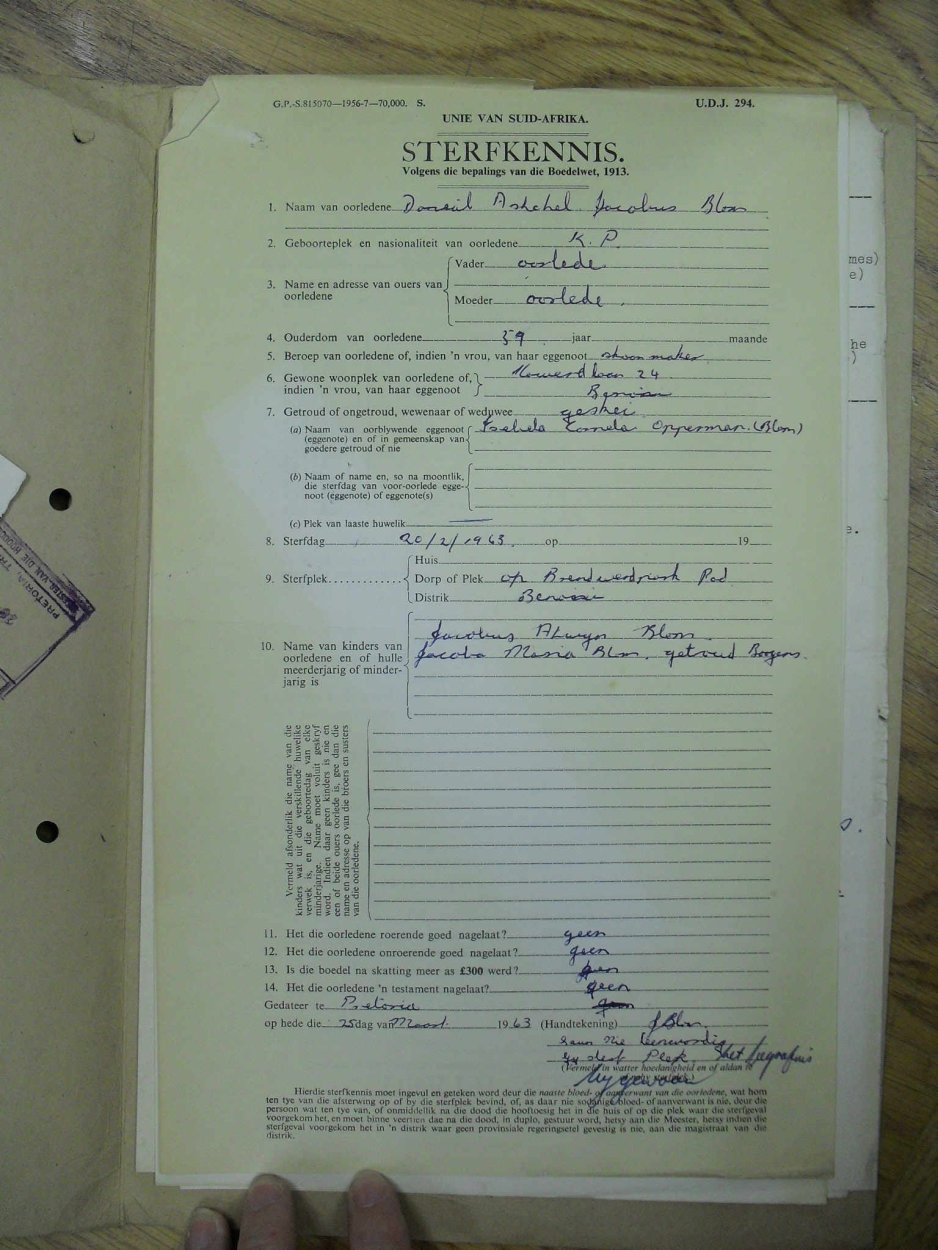 G.P.-S.815070—1956-7—70,000. S.
U.D.J. 294.
UNIE VAN SUID-AFRIKA.
STERFKENNIS.
Volgens die bepalings van die Boedelwet, 1913.
1. Naam van oorledene Jacobus Blom
2. Geboorteplek en nasionaliteit van oorledene K.P.
3. Name en adresse van ouers van oorledene
Vader oorlede
Moeder oorlede
4. Ouderdom van oorledene 59 jaar maande
5. Beroep van oorledene of, indien 'n vrou, van haar eggenoot skoonmaker
6. Gewone woonplek van oorledene of, indien 'n vrou, van haar eggenoot
24
7. Getroud of ongetroud, wewenaar of weduwee geskei
(a) Naam van oorblywende eggenoot (eggenote) en of in gemeenskap van goedere getroud of nie Opperman (Blom)
(b) Naam of name en, so na moontlik, die sterfdag van voor-oorlede eggenoot (eggenote) of eggenote(s)
(c) Plek van laaste huwelik —
8. Sterfdag 20/2/1963. op 19
9. Sterfplek
Huis
Dorp of Plek op Pad
Distrik
10. Name van kinders van oorledene en of hulle meerderjarig of minderjarig is
Jacobus Alwyn Blom.
Jacoba Maria Blom, getroud
Vermeld afsonderlik die name van die
kinders wat uit die verskillende huwelike
verwek is, en die geboortedag van elke
minderjarige. Name moet voluit geskryf
word. Indien daar geen kinders is nie en
een of beide ouers oorlede is, gee dan die
name en adresse op van die broers en susters
van die oorledene.
11. Het die oorledene roerende goed nagelaat? geen
12. Het die oorledene onroerende goed nagelaat? geen
13. Is die boedel na skatting meer as £300 werd? geen
14. Het die oorledene 'n testament nagelaat? geen
Gedateer te Pretoria
op hede die 25 dag van Maart 1963 (Handtekening) J Blom
Seun Nie Teenwoordig
by sterf Plek
(Vermeld in watter hoedanigheid en of aldan te
Hierdie sterfkennis moet ingevul en geteken word deur die naaste bloed- of aanverwant van die oorledene, wat hom
ten tye van die afsterwing op of by die sterfplek bevind, of, as daar nie sodanige bloed- of aanverwant is nie, deur die
persoon wat ten tye van, of onmiddellik na die dood die hooftoesig het in die huis of op die plek waar die sterfgeval
voorgekom het, en moet binne veertien dae na die dood, in duplo, gestuur word, hetsy aan die Meester, hetsy indien die
sterfgeval voorgekom het in 'n distrik waar geen provinsiale regeringsetel gevestig is nie, aan die magistraat van die
distrik.
mes)
e)
he
)
e.
PRETORIA